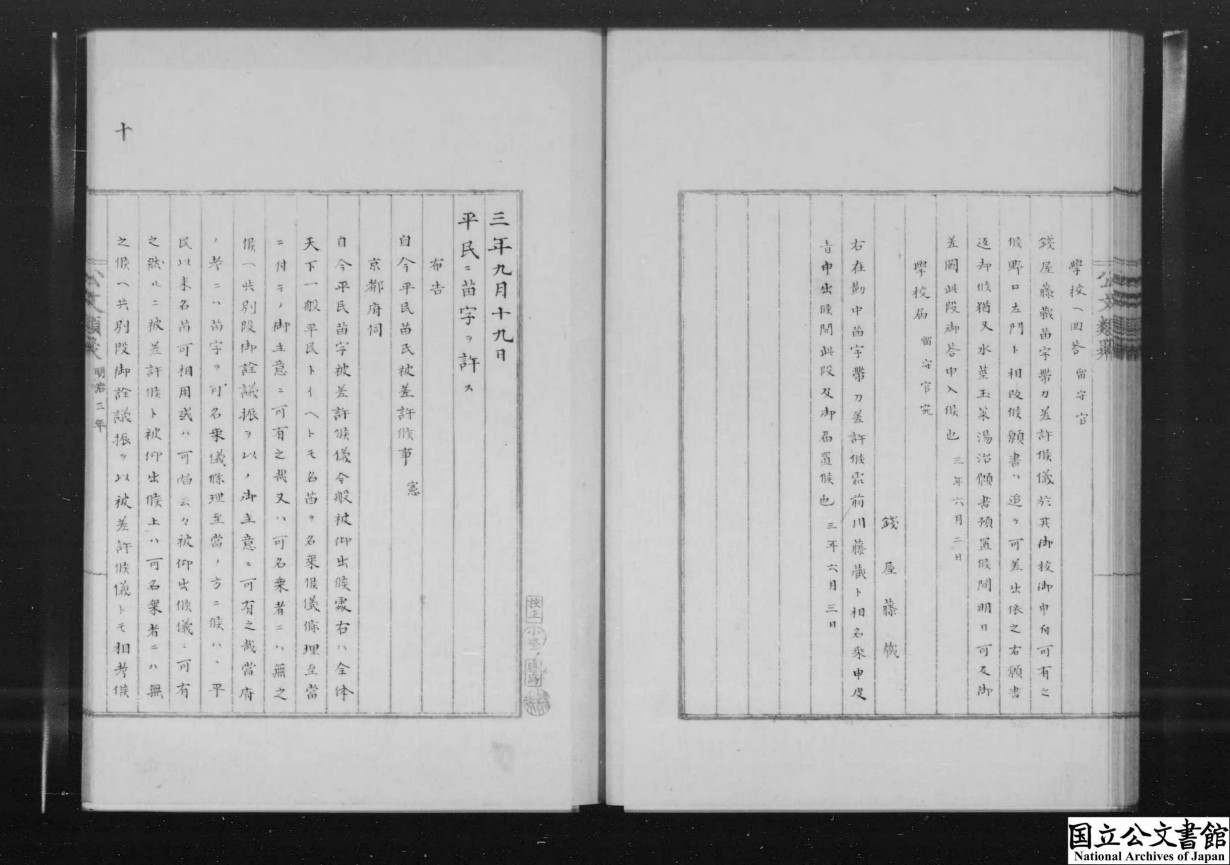 學校ヘ回答 留守官
錢屋藤蔵苗字帶刀差許候儀於其御校御申付可有之
候野口左門ト相改候願書ハ追テ可差出依之右願書
返却候猶又水莖玉菜湯治願書預置候間明日可及御
差圖此段御答申入候也 三年六月二日
學校届 留守官宛
錢屋藤蔵
右在勤中苗字帶刀差許候處前川藤蔵ト相名乘申度
旨申出候間此段及御届置候也 三年六月三日
公文類聚
三年九月十九日
平民ニ苗字ヲ許ス
布告
自今平民苗民被差許候事 憲
京都府伺
自今平民苗字被差許候儀今般被仰出候處右ハ全体
天下一般平民トイヘトモ名苗ヲ名乘候儀條理至當
ニ付テノ御主意ニ可有之哉又ハ可名乘者ニハ無之
候ヘ共別段御詮議振ヲ以ノ御主意ニ可有之哉當府
ノ考ニハ苗字ヲ可名乘儀條理至當ノ方ニ候ハヽ平
民以来名苗可相用或ハ可唱云々被仰出候儀ニ可有
之然ルニ被差許候ト被仰出候上ハ可名乘者ニハ無
之候ヘ共別段御詮議振ヲ以被差許候儀トモ相考候
明治三年
十
校正
国立公文書館
National Archives of Japan